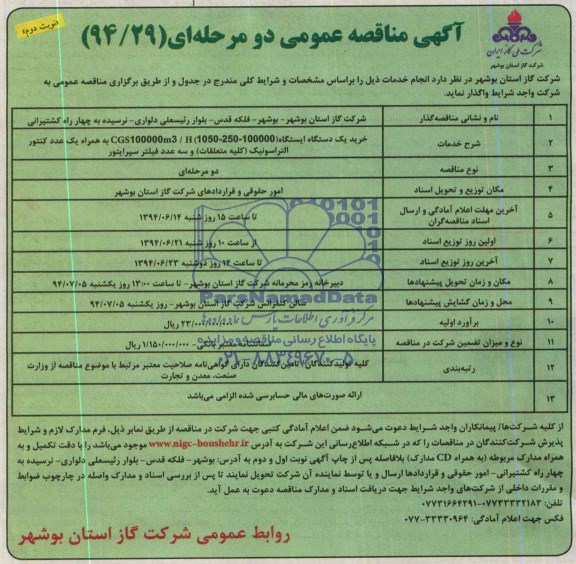 «نوبت دوم»
آگهی مناقصه عمومی دو مرحله‌ای(۹۴/۲۹)
شرکت ملی گاز ایران
شرکت گاز استان بوشهر
شرکت گاز استان بوشهر در نظر دارد انجام خدمات ذیل را براساس مشخصات و شرایط کلی مندرج در جدول و از طریق برگزاری مناقصه عمومی به
شرکت واجد شرایط واگذار نماید.
۱ نام و نشانی مناقصه‌گذار شرکت گاز استان بوشهر- بوشهر- فلکه قدس- بلوار رئیسعلی دلواری- نرسیده به چهار راه کشتیرانی
۲ شرح خدمات خرید یک دستگاه ایستگاه(CGS100000m3 / H (1050-250-100000 به همراه یک عدد کنتور
التراسونیک (کلیه متعلقات) و سه عدد فیلتر سپراتور
۳ نوع مناقصه دو مرحله‌ای
۴ مکان توزیع و تحویل اسناد امور حقوقی و قراردادهای شرکت گاز استان بوشهر
۵ آخرین مهلت اعلام آمادگی و ارسال اسناد مناقصه‌گران تا ساعت ۱۵ روز شنبه ۱۳۹۴/۰۶/۱۴
۶ اولین روز توزیع اسناد از ساعت ۱۰ روز شنبه ۱۳۹۴/۰۶/۲۱
۷ آخرین روز توزیع اسناد تا ساعت ۱۴ روز دوشنبه ۱۳۹۴/۰۶/۲۳
۸ مکان و زمان تحویل پیشنهادها دبیرخانه رمز محرمانه شرکت گاز استان بوشهر- تا ساعت ۱۳:۰۰ روز یکشنبه ۹۴/۰۷/۰۵
۹ محل و زمان گشایش پیشنهادها سالن کنفرانس شرکت گاز استان بوشهر- روز یکشنبه ۹۴/۰۷/۰۵
۱۰ برآورد اولیه ۲۳/۰۰۰/۰۰۰/۰۰۰
۱۱ نوع و میزان تضمین شرکت در مناقصه ضمانتنامه معتبر بانکی- ۱/۱۵۰/۰۰۰/۰۰۰
۱۲ رتبه‌بندی کلیه تولیدکنندگان/ تامین‌کنندگان دارای گواهی‌نامه صلاحیت معتبر مرتبط با موضوع مناقصه از وزارت
صنعت، معدن و تجارت
۱۳ ارائه صورت‌های مالی حسابرسی شده الزامی می‌باشد
ParsNamadData
مرکز فرآوری اطلاعات پارس نماد داده‌ها
پایگاه اطلاع رسانی مناقصه و مزایده
۰۲۱-۸۸۳۴۹۶۷۰-۵
از کلیه شرکت‌ها/ پیمانکاران واجد شرایط دعوت می‌شود ضمن اعلام آمادگی کتبی جهت شرکت در مناقصه از طریق نمابر ذیل، فرم مدارک لازم و شرایط
پذیرش شرکت‌کنندگان در مناقصات را که در شبکه اطلاع‌رسانی این شرکت به آدرس www.nigc-boushehr.ir موجود می‌باشد را با دقت تکمیل و به
همراه مدارک مربوطه (به همراه CD مدارک) بلافاصله پس از چاپ آگهی نوبت اول و دوم به آدرس: بوشهر- فلکه قدس- بلوار رئیسعلی دلواری- نرسیده به
چهار راه کشتیرانی- امور حقوقی و قراردادها ارسال و یا توسط نماینده آن شرکت تحویل نمایند تا پس از بررسی اسناد و مدارک واصله در چارچوب ضوابط
و مقررات داخلی از شرکت‌های واجد شرایط جهت دریافت اسناد و مدارک مناقصه دعوت به عمل آید.
تلفن: ۰۷۷۳۳۳۳۲۱۸۳-۰۷۷۳۱۶۶۴۲۹۱
فکس جهت اعلام آمادگی: ۰۷۷-۳۳۳۳۰۹۶۴
روابط عمومی شرکت گاز استان بوشهر